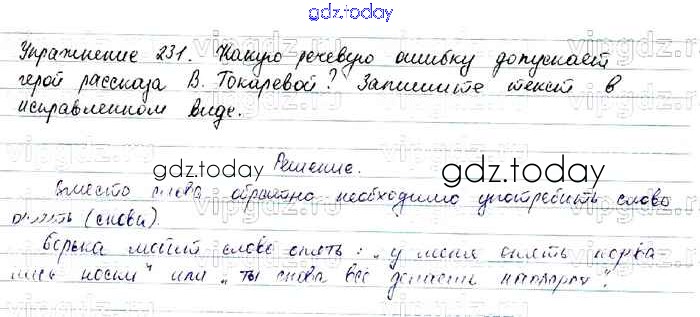 gdz.today
Упражнение 231. Какую речевую ошибку допускает
герой рассказа В. Токаревой? Запишите текст в
исправленном виде.
gdz.today
gdz.today
Решение.
Вместо слова обратно необходимо употребить слово
опять (снова).
Борька может слово опять: „у меня опять порва
лись носки" или „ты снова всё делаешь